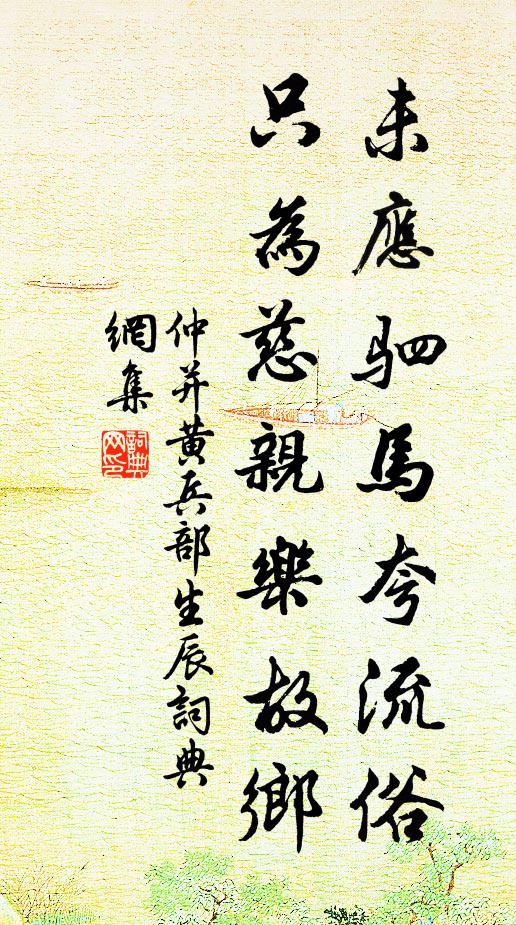 未應駟馬夸流俗
只為慈親樂故鄉
仲并黄兵部生辰詞典
網集
詞典
网印